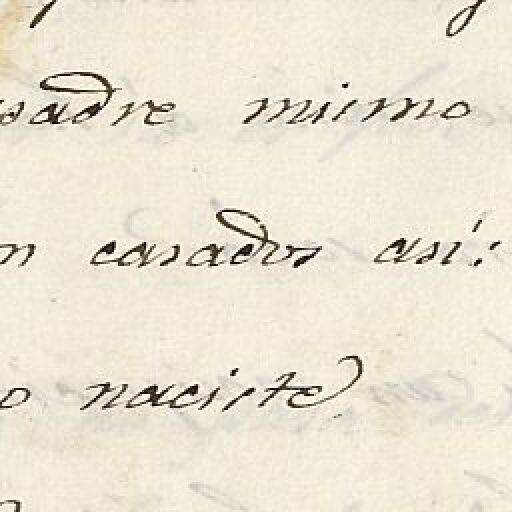 padre mismo
n casados así:
o naciste